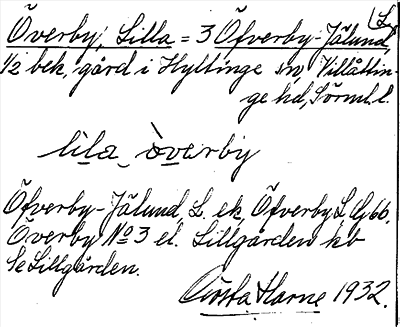 Överby, Lilla = 3 Öfverby-Jälund, L.
1/2 bek. gård i Hyltinge sn, Villåttin-
ge hd, Sörml. l.
lila överby
Öfverby-Jälund, L. ek, Öfverby L, Gg 66.
Överby No 3 el. Lillgården kb
Se Lillgården.
Gösta Harne 1932.